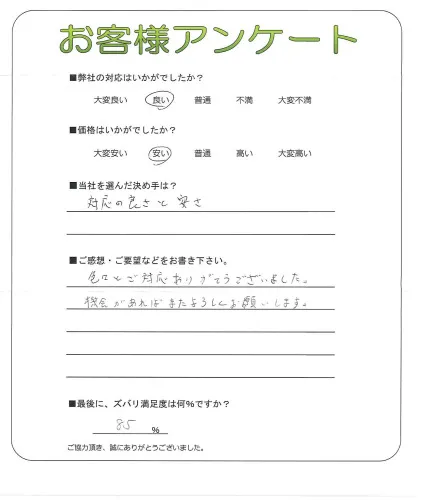 お客様アンケート
■弊社の対応はいかがでしたか?
大変良い 良い 普通 不満 大変不満
■価格はいかがでしたか?
大変安い 安い 普通 高い 大変高い
■当社を選んだ決め手は?
対応の良さと安さ
■ご感想・ご要望などをお書き下さい。
色々とご対応ありがとうございました。
機会があればまたよろしくお願いします。
■最後に、ズバリ満足度は何%ですか?
85 %
ご協力頂き、誠にありがとうございました。